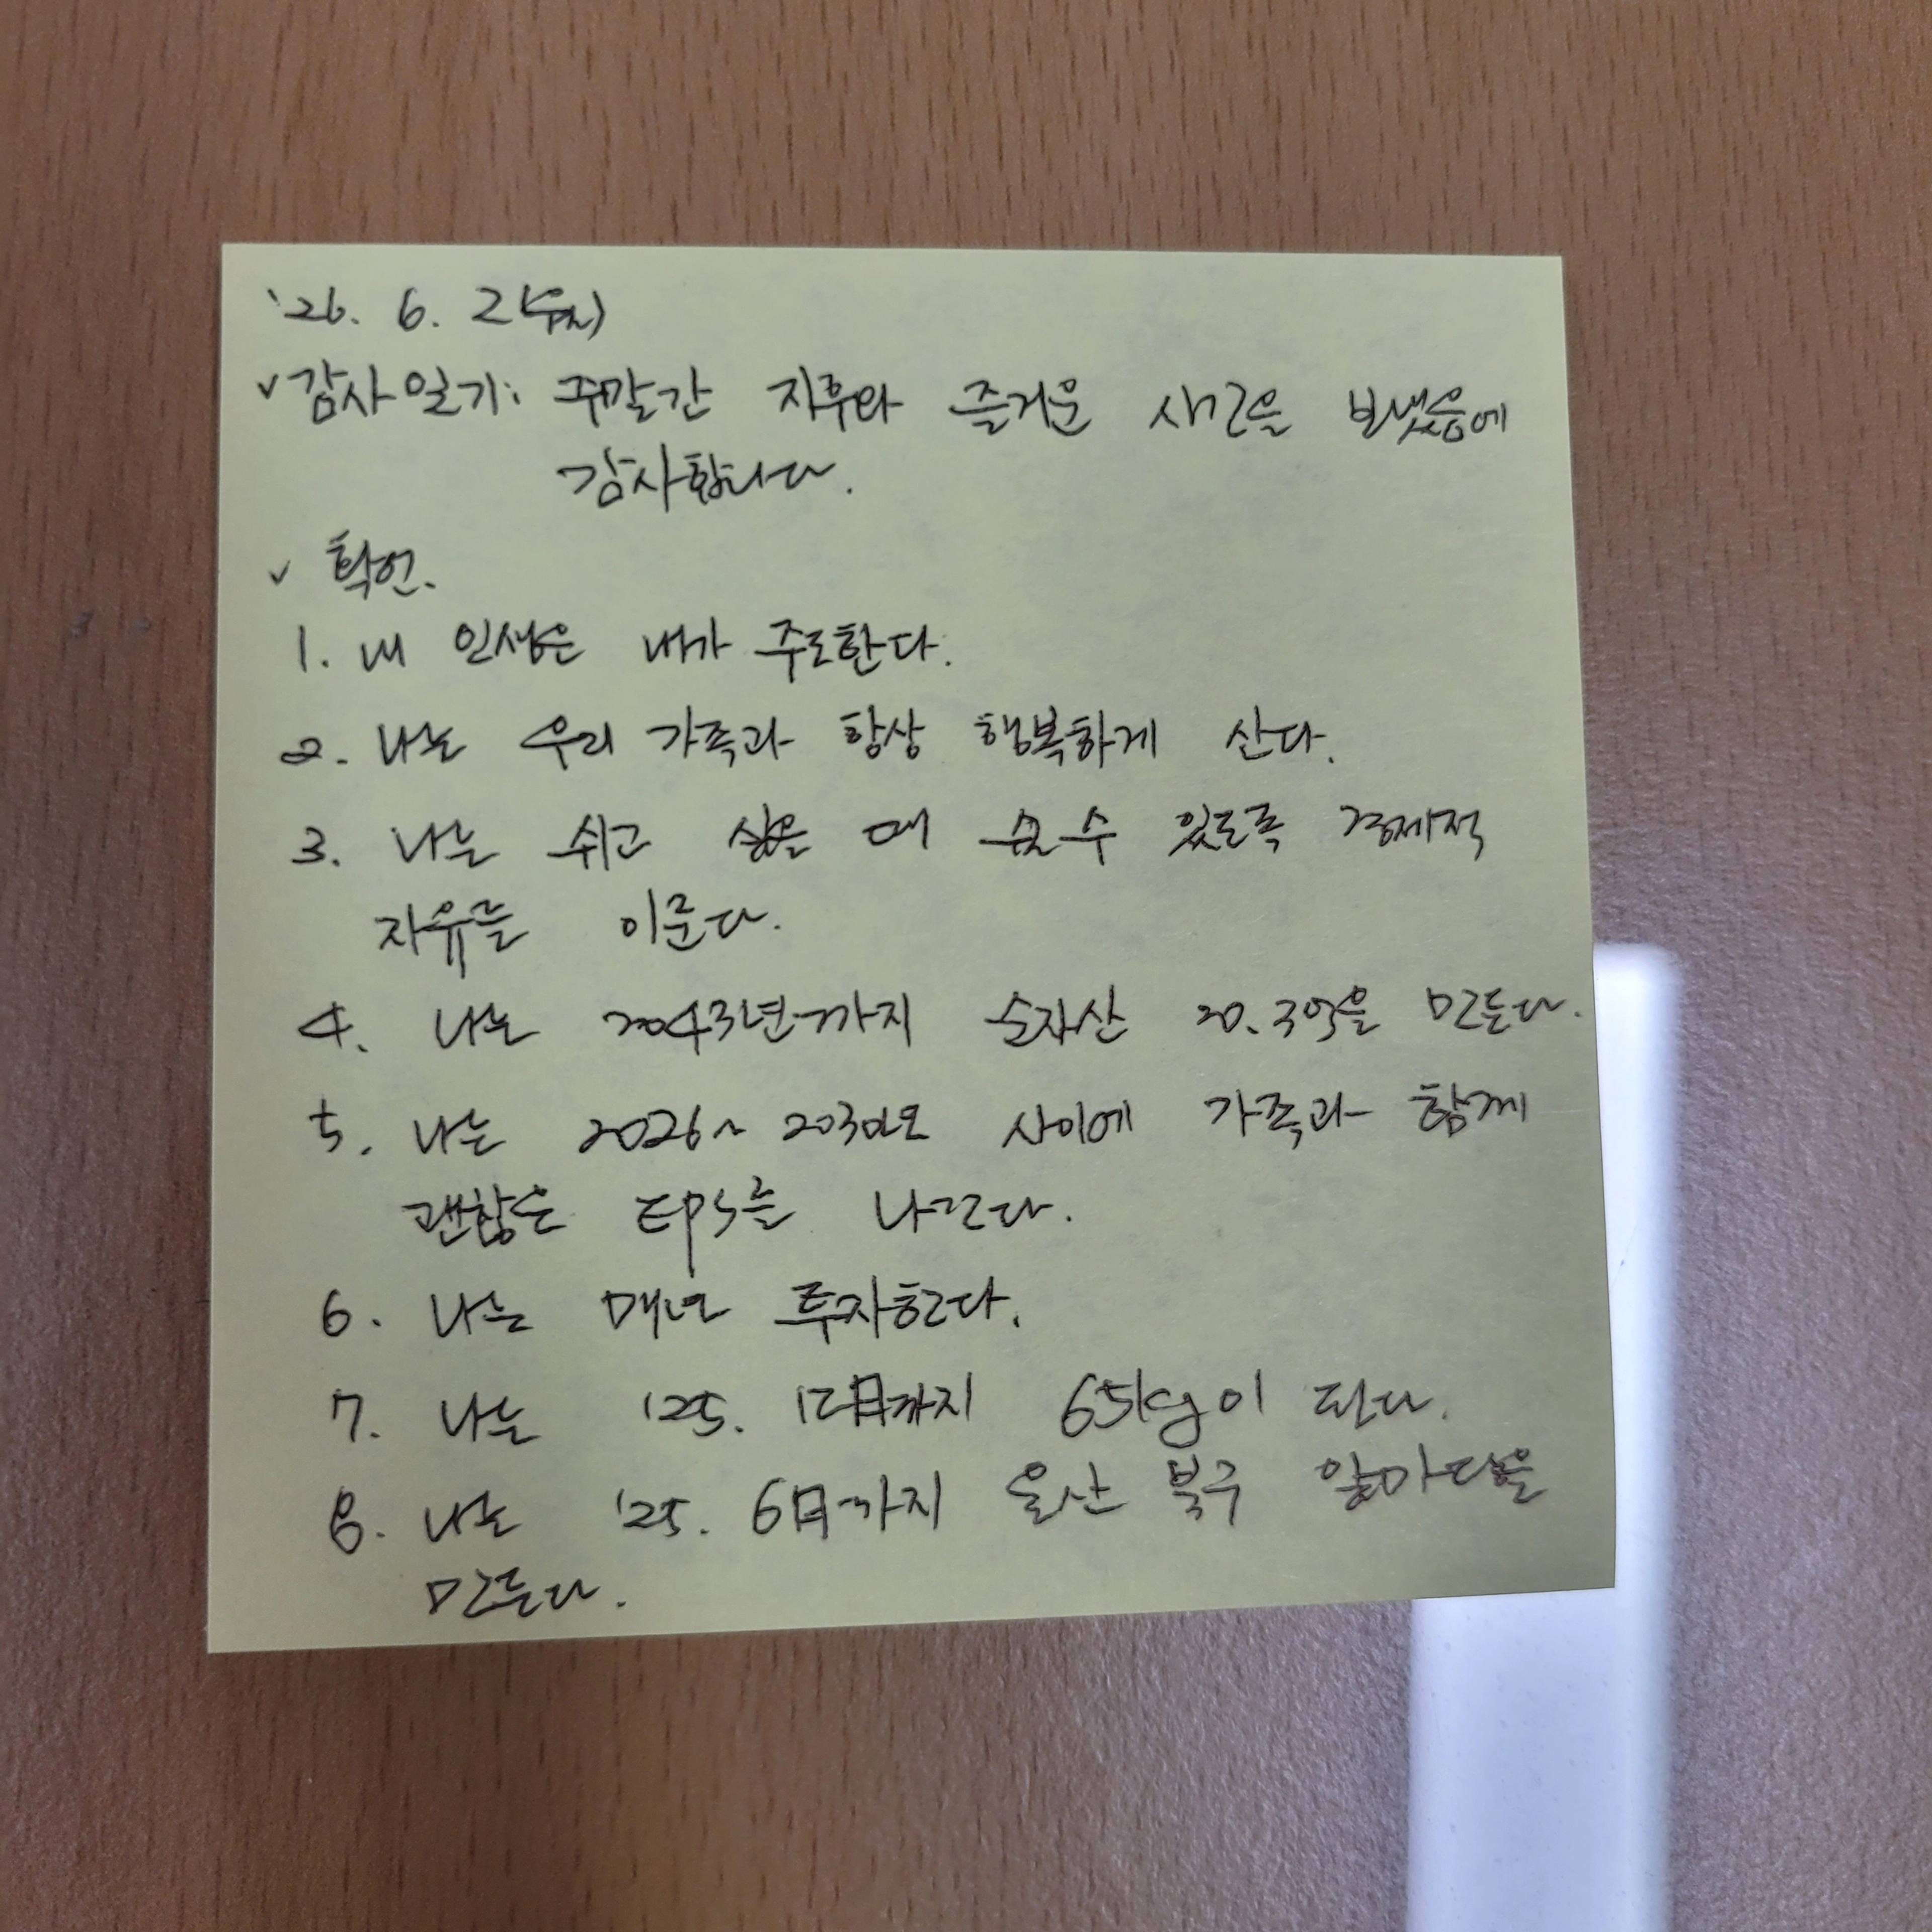 '26. 6. 2
v 감사일기: 주말간 지후와 즐거운 시간을 보냈음에
감사합니다.
v 확언.
1. 내 인생은 내가 주도한다.
2. 나는 우리 가족과 항상 행복하게 산다.
3. 나는 쉬고 싶을 때 쉴 수 있도록 경제적
자유를 이룬다.
4. 나는 2043년까지 순자산 20.3억을 만든다.
5. 나는 2026~ 사이에 가족과 함께
괜찮은 를 나간다.
6. 나는 매년 투자한다.
7. 나는 '25. 12月까지 65kg이 된다.
8. 나는 '25. 6月까지 울산 북구 앞마당을
만든다.